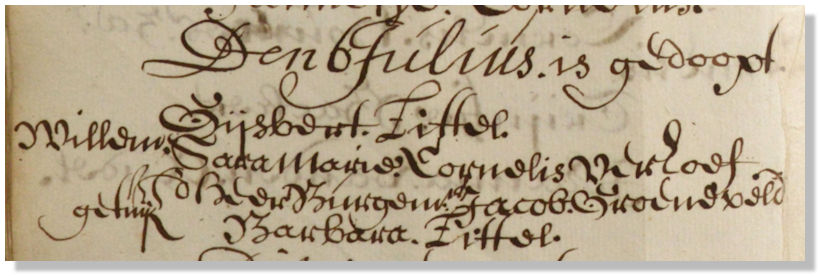 Den 6 Julius. is gedoopt.
Willem. Gijsbert. Tiffel.
Sara Marie. Cornelis Verloef
getuijg d'Heer Burgemr. Jacob. Groeneveld
Barbara. Tiffel.